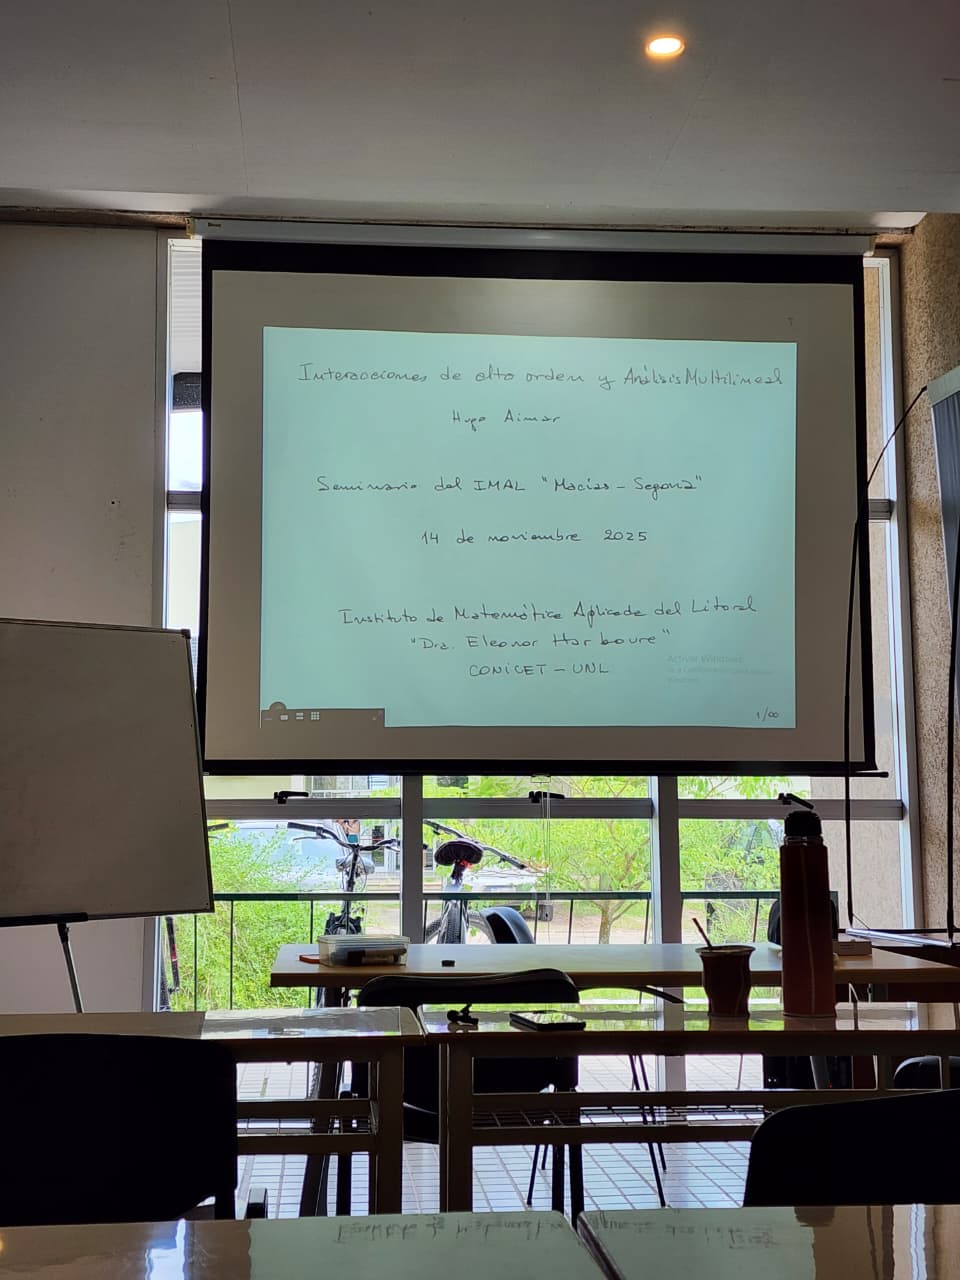 Interacciones de alto orden y Análisis Multilineal
Hugo Aimar
Seminario del IMAL "Macías - Segovia"
14 de noviembre 2025
Instituto de Matemática Aplicada del Litoral
"Dra. Eleonor Harboure"
CONICET - UNL
Activar Windows
1/∞